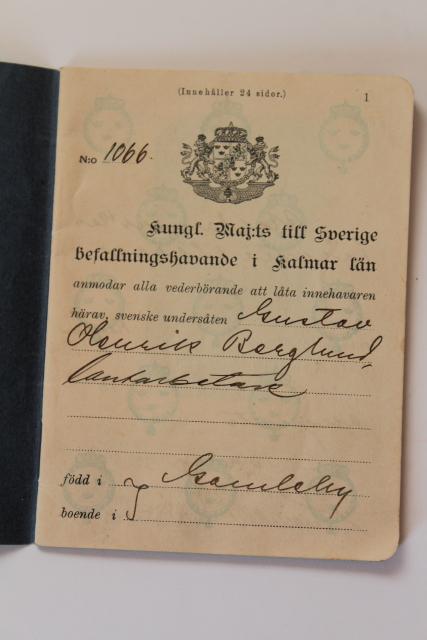 (Innehåller 24 sidor.)
1
N:o 1066.
Kungl. Maj:ts till Sverige
befallningshavande i Kalmar län
anmodar alla vederbörande att låta innehavaren
härav, svenske undersåten Gustav
Henrik Berglund,
lantarbetare
född i Gamleby
boende i